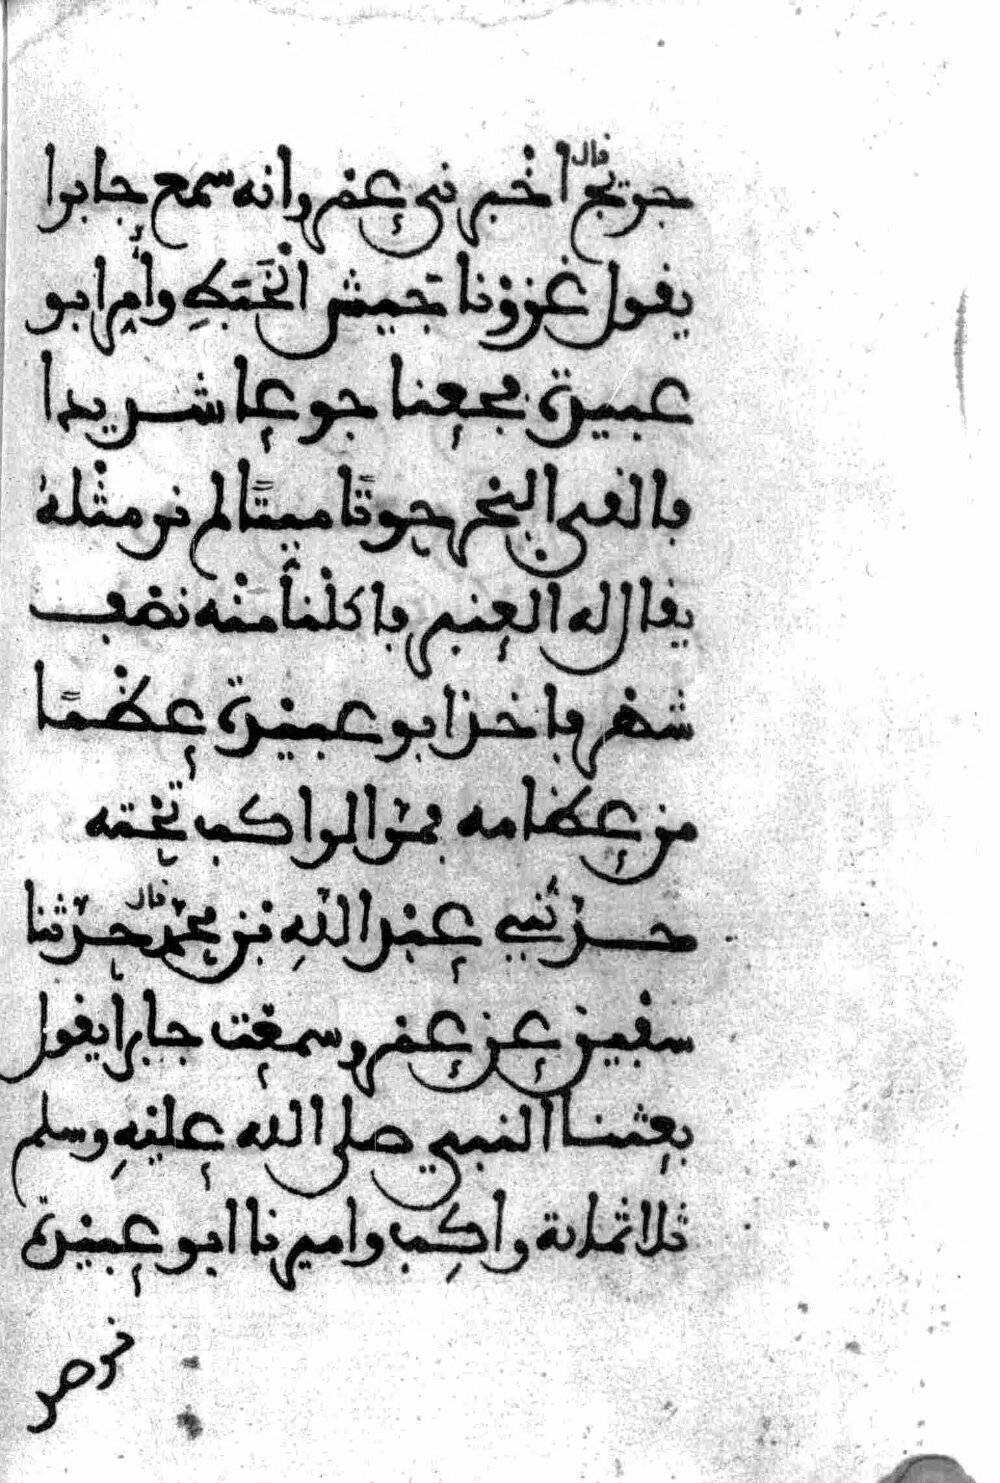 جريج قال اخبرني عمرو انه سمع جابرا
يقول غزونا جيش الخبط وأمر ابو
عبيدة فجعنا جوعا شديدا
فالقى البحر حوتًا ميتًا لم نر مثله
يقال له العنبر فاكلنا منه نصف
شهر فاخذ ابو عبيدة عظمًا
من عظامه فمر الراكب تحته
حدثني عبد الله بن محمد قال حدثنا
سفين عن عمرو سمعت جابرا يقول
بعثنا النبي صلى الله عليه وسلم
ثلاثمائة راكب واميرنا ابو عبيدة
نرصد